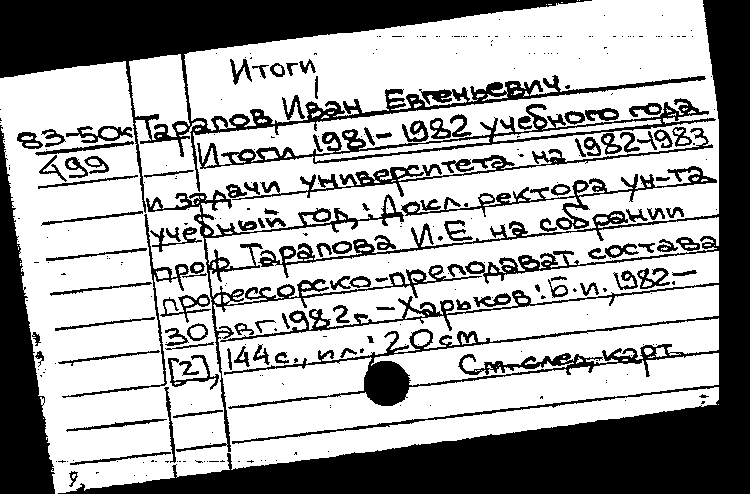 Итоги
83-50к Тарапов, Иван Евгеньевич.
499 Итоги 1981-1982 учебного года
и задачи университета на 1982-1983
учебный год,: Докл. ректора ун-та
проф. Тарапова И.Е. на собрании
профессорско-преподават. состава
30 авг. 1982 г. - Харьков: Б.и., 1982.-
[2], 144 с., ил.; 20 см.
См. след. карт.